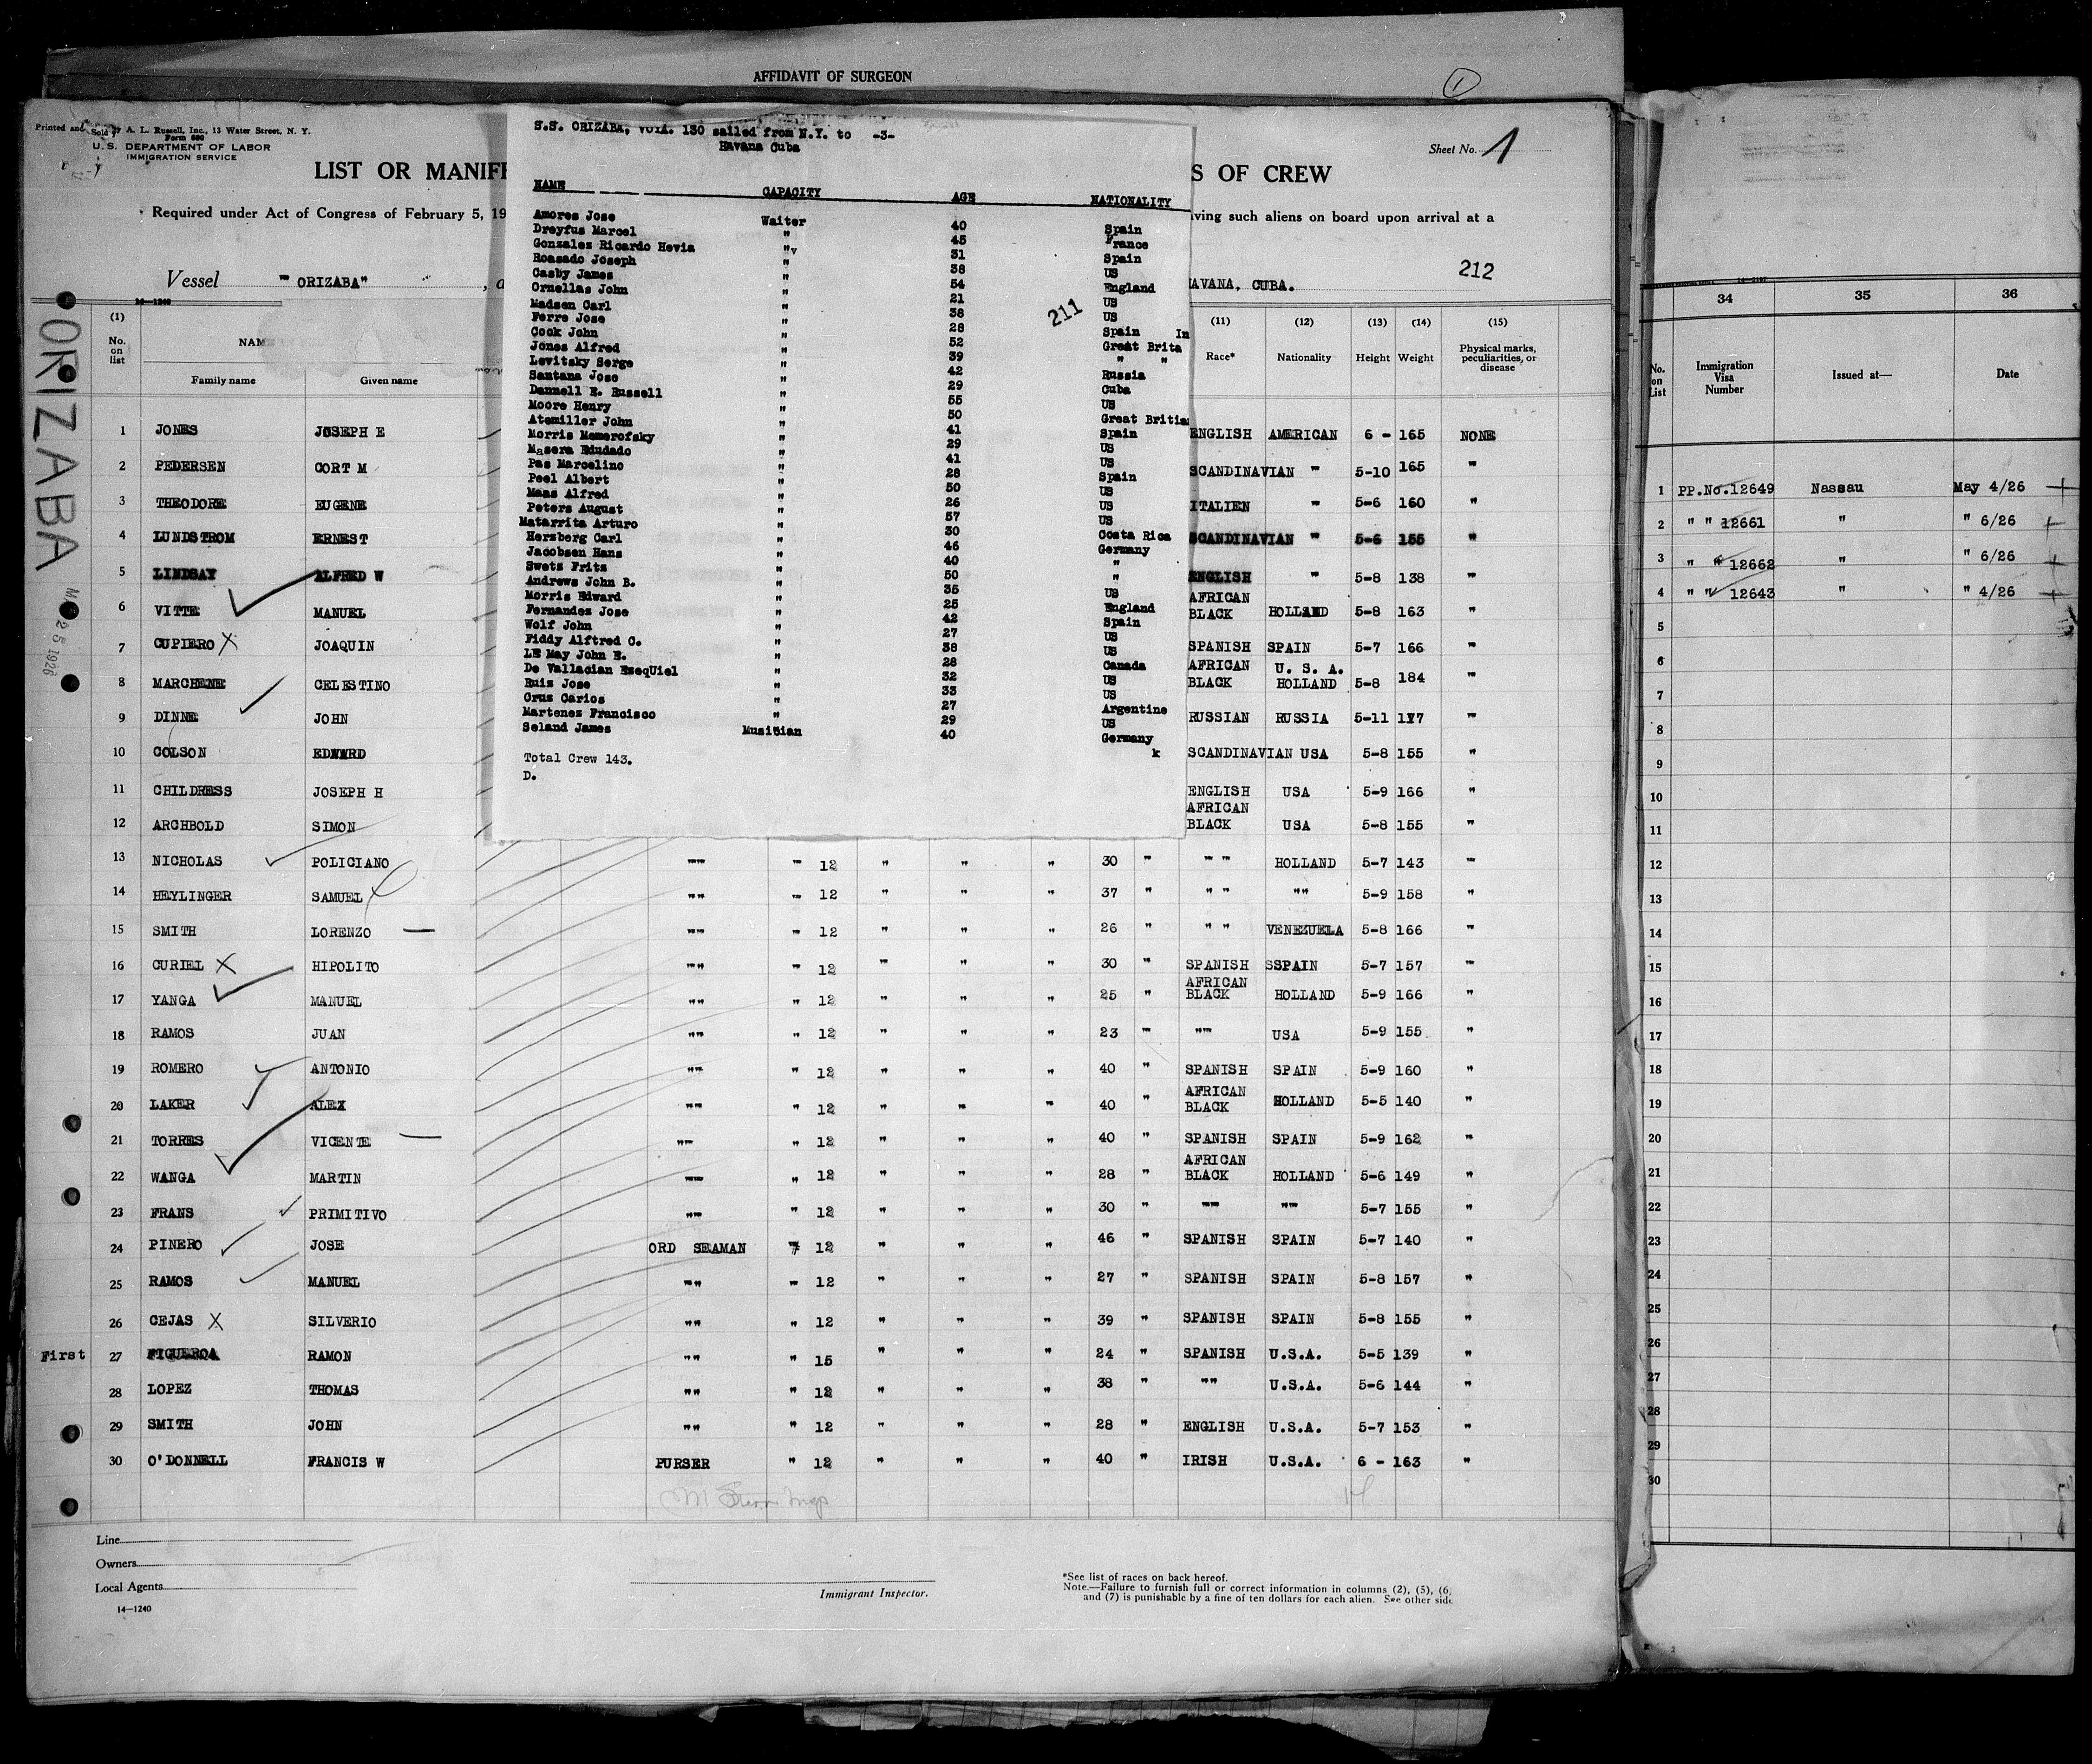 AFFIDAVIT OF SURGEON
1
Printed and Sold by A. L. Russell, Inc., 13 Water Street, N. Y.
Form 680
U. S. DEPARTMENT OF LABOR
IMMIGRATION SERVICE
Sheet No. 1
LIST OR MANIF
S OF CREW
Required under Act of Congress of February 5, 19
ving such aliens on board upon arrival at a
Vessel "ORIZABA"
AVANA, CUBA.
212
14-1240
ORIZABA
25 1926
S.S. ORIZABA, VOYA. 130 sailed from N.Y. to -3-
Havana Cuba
NAME CAPACITY AGE NATIONALITY
Amores Jose Waiter 40 Spain
Dreyfus Marcel " 45 France
Gonzales Ricardo Hevia "v 31 Spain
Roasado Joseph " 38 US
Casby James " 54 England
Ornellas John " 21 US
Madsen Carl " 38 US
Ferre Jose " 28 Spain In
Cook John " 52 Great Brita
Jones Alfred " 39 " "
Levitsky Serge " 42 Russia
Santana Jose " 29 Cuba
Dannell E. Russell " 55 US
Moore Henry " 50 Great Britia
Atemiller John " 41 Spain
Morris Memerofsky " 29 US
Masera Edudado " 41 US
Pas Marcelino " 28 Spain
Peel Albert " 50 US
Maas Alfred " 26 US
Peters August " 57 US
Matarrita Arturo " 30 Costa Rica
Herzberg Carl " 46 Germany
Jacobsen Hans " 40 "
Swets Frits " 50 "
Andrews John B. " 35 US
Morris Edward " 25 England
Fernandez Jose " 42 Spain
Wolf John " 27 US
Fiddy Alftred C. " 38 US
LE May John E. " 28 Canada
De Vallacian EzeqUiel " 32 US
Ruiz Jose " 33 US
Cruz Carlos " 27 Argentine
Martenez Francisco " 29 US
Seland James Musitian 40 Germany
k
Total Crew 143.
D.
211
(1) (11) (12) (13) (14) (15)
No. on list NAM Race* Nationality Height Weight Physical marks, peculiarities, or disease
Family name Given name
1 JONES JOSEPH E ENGLISH AMERICAN 6 - 165 NONE
2 PEDERSEN CORT M SCANDINAVIAN " 5-10 165 "
3 THEODORE EUGENE ITALIEN " 5-6 160 "
4 LUNDSTROM ERNEST SCANDINAVIAN " 5-6 155 "
5 LINDSAY ALFRED W ENGLISH " 5-8 138 "
6 VITTE MANUEL AFRICAN BLACK HOLLAND 5-8 163 "
7 CUPIERO X JOAQUIN SPANISH SPAIN 5-7 166 "
8 MARCHENE CELESTINO AFRICAN BLACK U. S. A. HOLLAND 5-8 184 "
9 DINNE JOHN RUSSIAN RUSSIA 5-11 177 "
10 COLSON EDWARD SCANDINAVIAN USA 5-8 155 "
11 CHILDRESS JOSEPH H ENGLISH USA 5-9 166 "
12 ARCHBOLD SIMON AFRICAN BLACK USA 5-8 155 "
13 NICHOLAS POLICIANO "" " 12 " " " 30 " " " HOLLAND 5-7 143 "
14 HEYLINGER SAMUEL "" " 12 " " " 37 " " " "" 5-9 158 "
15 SMITH LORENZO "" " 12 " " " 26 " " " VENEZUELA 5-8 166 "
16 CURIEL X HIPOLITO "" " 12 " " " 30 " SPANISH SSPAIN 5-7 157 "
17 YANGA MANUEL "" " 12 " " " 25 " AFRICAN BLACK HOLLAND 5-9 166 "
18 RAMOS JUAN "" " 12 " " " 23 " "" USA 5-9 155 "
19 ROMERO ANTONIO "" " 12 " " " 40 " SPANISH SPAIN 5-9 160 "
20 LAKER ALEX "" " 12 " " " 40 " AFRICAN BLACK HOLLAND 5-5 140 "
21 TORRES VICENTE "" " 12 " " " 40 " SPANISH SPAIN 5-9 162 "
22 WANGA MARTIN "" " 12 " " " 28 " AFRICAN BLACK HOLLAND 5-6 149 "
23 FRANS PRIMITIVO "" " 12 " " " 30 " "" "" 5-7 155 "
24 PINERO JOSE ORD SEAMAN " 12 " " " 46 " SPANISH SPAIN 5-7 140 "
25 RAMOS MANUEL "" " 12 " " " 27 " SPANISH SPAIN 5-8 157 "
26 CEJAS X SILVERIO "" " 12 " " " 39 " SPANISH SPAIN 5-8 155 "
First 27 FIGUEROA RAMON "" " 15 " " " 24 " SPANISH U.S.A. 5-5 139 "
28 LOPEZ THOMAS "" " 12 " " " 38 " "" U.S.A. 5-6 144 "
29 SMITH JOHN "" " 12 " " " 28 " ENGLISH U.S.A. 5-7 153 "
30 O'DONNELL FRANCIS W PURSER " 12 " " " 40 " IRISH U.S.A. 6 - 163 "
Line
Owners
Local Agents
14-1240
Immigrant Inspector.
*See list of races on back hereof.
Note.—Failure to furnish full or correct information in columns (2), (5), (6)
and (7) is punishable by a fine of ten dollars for each alien. See other side
34 35 36
No. on List Immigration Visa Number Issued at— Date
1 PP.No.12649 Nassau May 4/26
2 " " 12661 " " 6/26
3 " " 12662 " " 6/26
4 " " 12643 " " 4/26
5
6
7
8
9
10
11
12
13
14
15
16
17
18
19
20
21
22
23
24
25
26
27
28
29
30